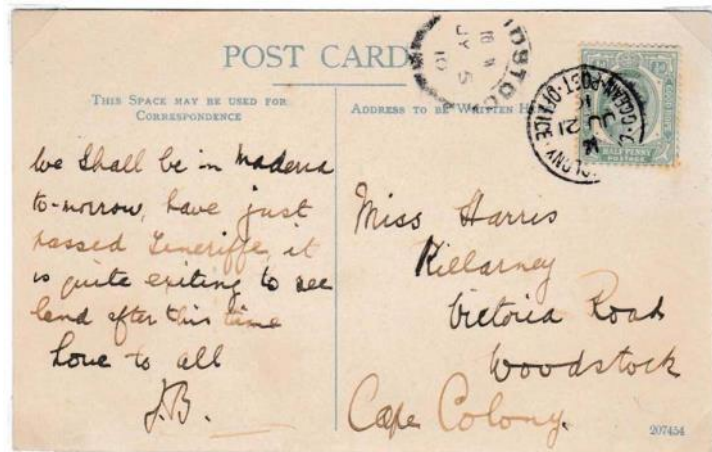 POST CARD
THIS SPACE MAY BE USED FOR
CORRESPONDENCE
ADDRESS TO BE WRITTEN H
We Shall be in Maderia
to-morrow, have just
passed Teneriffe, it
is quite exiting to see
land after this time
Love to all
J.B.
Miss Harris
Killarney
Victoria Road
Woodstock
Cape Colony.
207454
DSTOC
JY 5
10
COLONY. OCEAN-POST-OFFICE
JU 21
HALF PENNY
POSTAGE